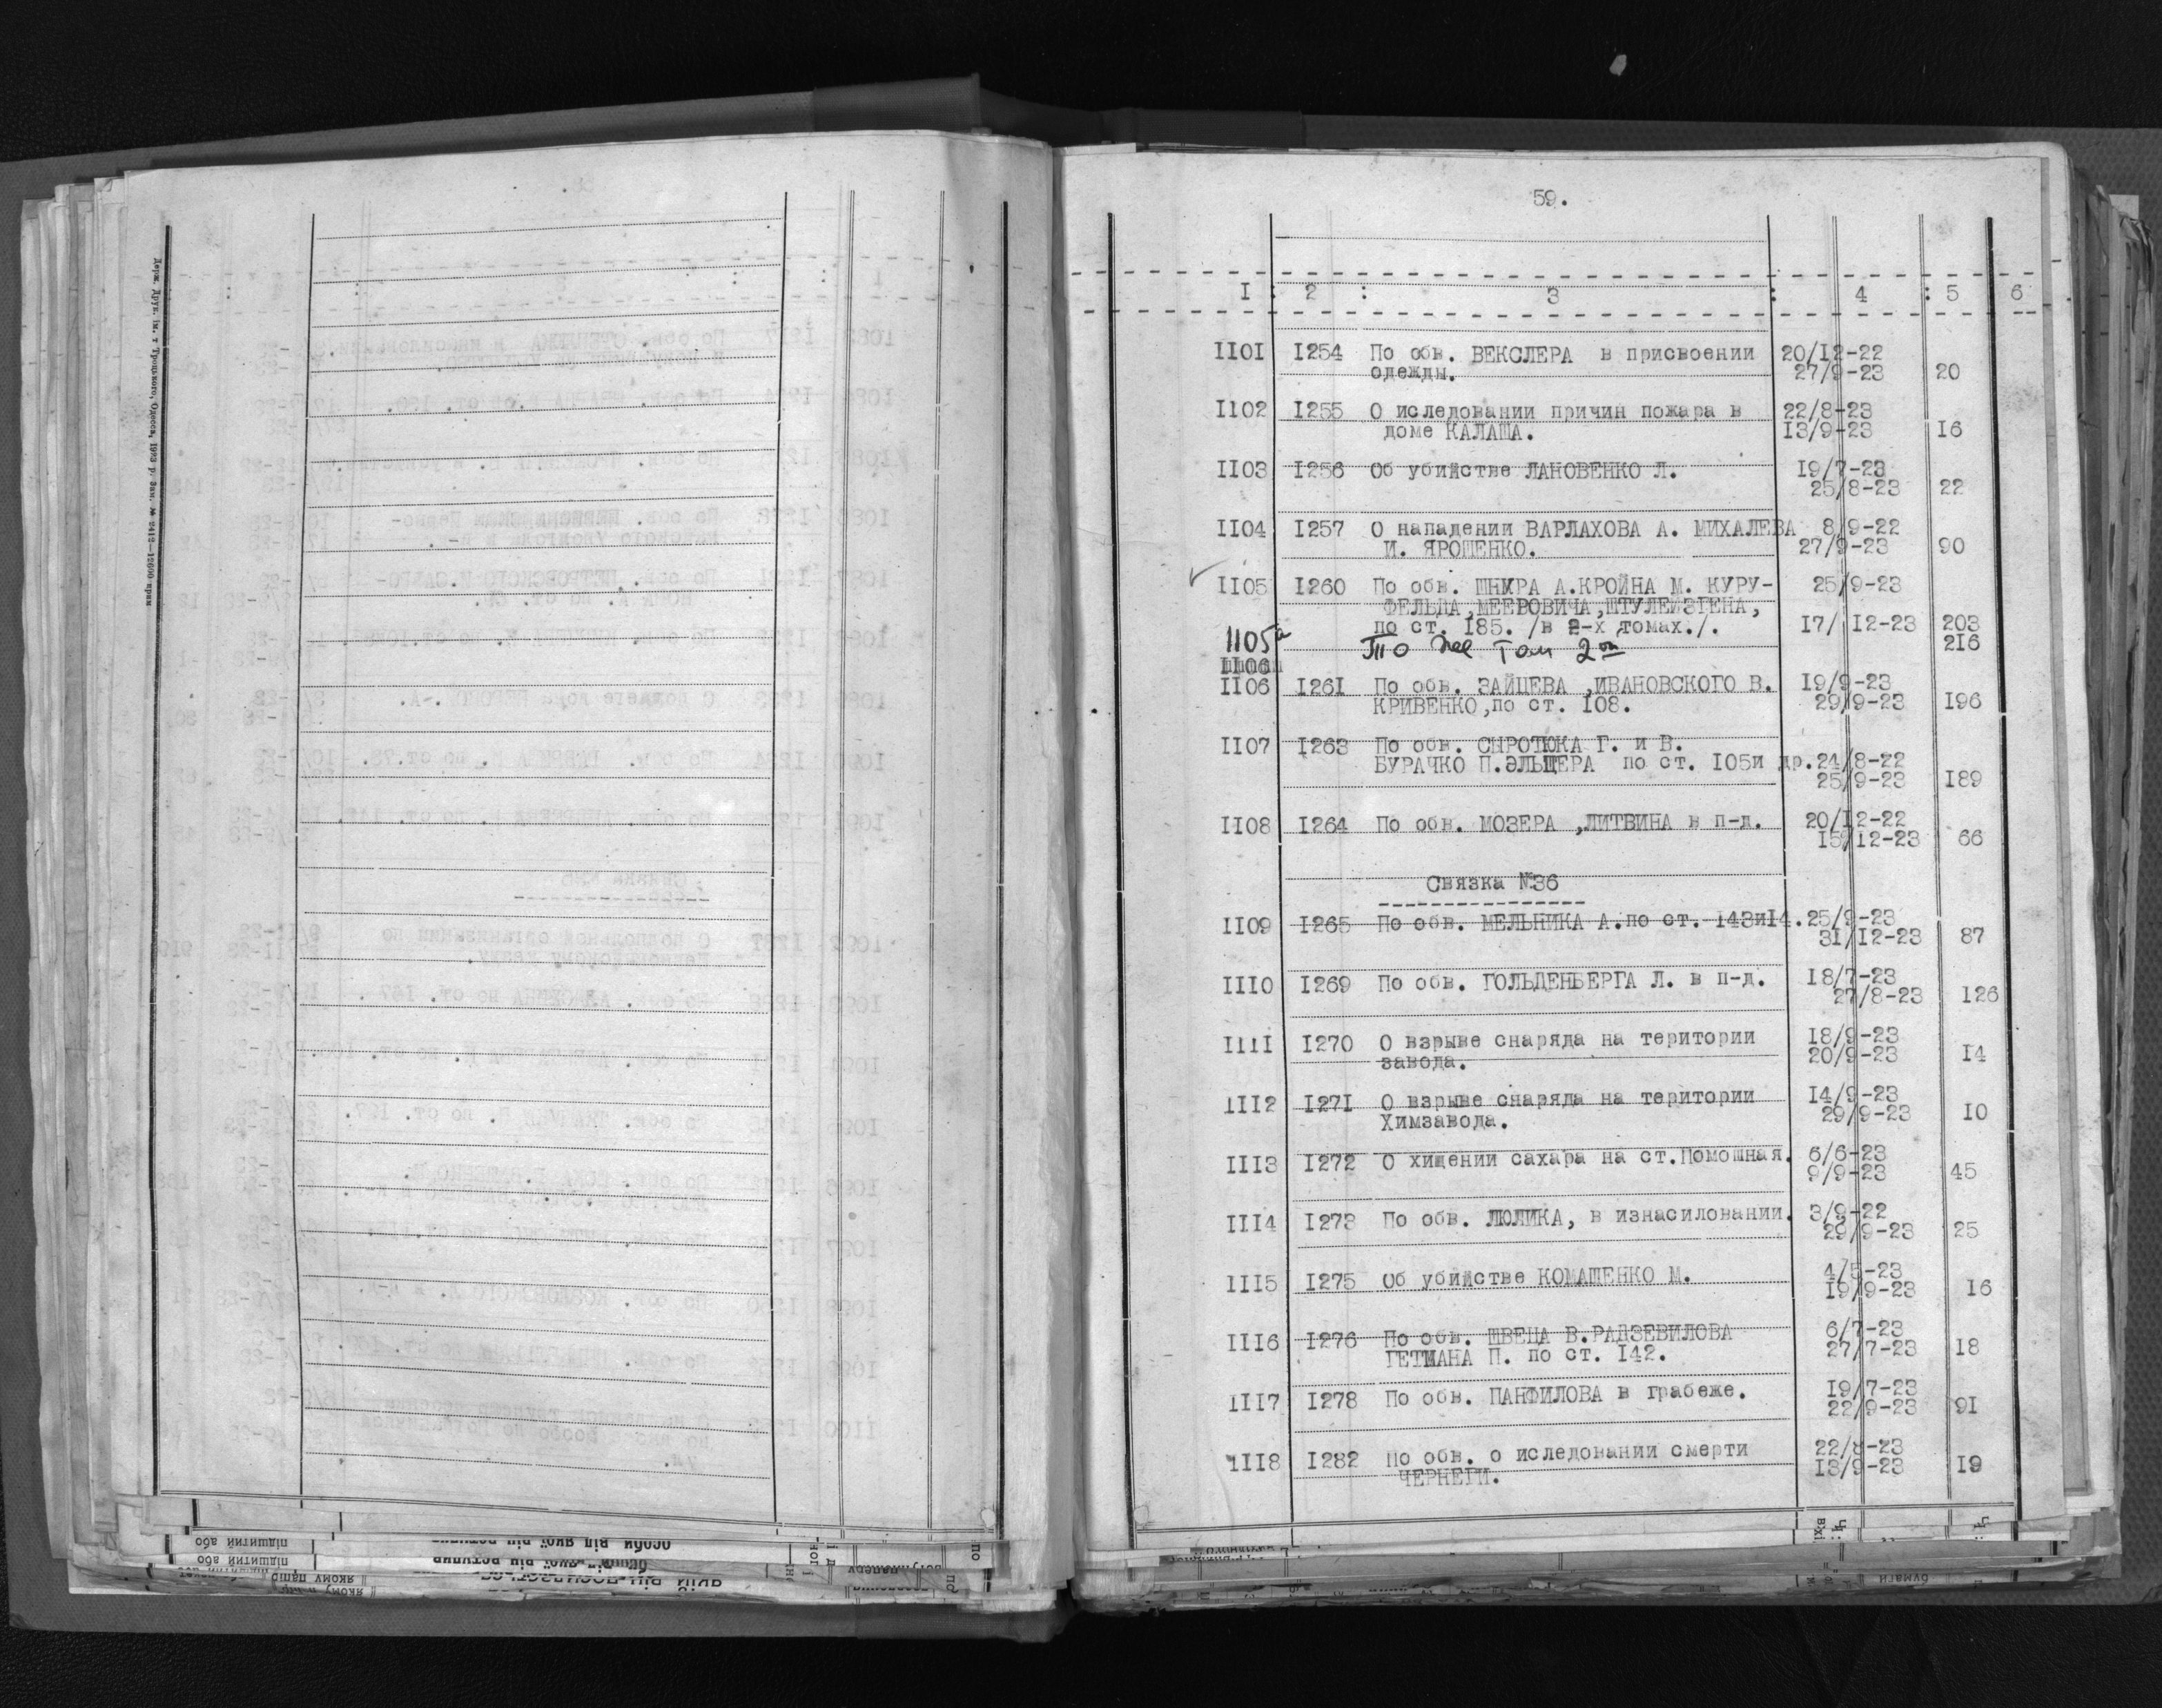 Держ. Друк. ім. т Троцького, Одесса, 1923 р. Зам. № 2412—12600 прим
59.
I : 2 : 3 : 4 : 5 6
II0I I254 По обв. ВЕКСЛЕРА в присвоении 20/I2-22
одежды. 27/9-23 20
II02 I255 О иследовании причин пожара в 22/8-23
доме КАЛАША. I3/9-23 I6
II03 I256 Об убийстве ЛАНОВЕНКО Л. I9/7-23
25/8-23 22
II04 I257 О нападении ВАРЛАХОВА А. МИХАЛЕВА 8/9-22
И. ЯРОШЕНКО. 27/9-23 90
II05 I260 По обв. ШНИРА А.КРОЙНА М. КУРУ- 25/9-23
ФЕЛЬДА,МЕЕРОВИЧА,ШТУЛЕЙЗГЕНА,
по ст. I85. /в 2-х томах./. I7/ I2-23 203
1105а То же Том 2ой 216
II06 I26I По обв. ЗАЙЦЕВА ,ИВАНОВСКОГО В. I9/9-23
КРИВЕНКО,по ст. I08. 29/9-23 I96
II07 I263 По обв. СЫРОТЮКА Г. и В.
БУРАЧКО П.ЭЛЬЦЕРА по ст. I05и др.24/8-22
25/9-23 I89
II08 I264 По обв. МОЗЕРА ,ЛИТВИНА в п-д. 20/I2-22
I5/I2-23 66
Связка №36
II09 I265 По обв. МЕЛЬНИКА А.по ст. I43иI4.25/9-23
3I/I2-23 87
III0 I269 По обв. ГОЛЬДЕНБЕРГА Л. в п-д. I8/7-23
27/8-23 I26
IIII I270 О взрыве снаряда на територии I8/9-23
завода. 20/9-23 I4
III2 I27I О взрыве снаряда на територии I4/9-23
Химзавода. 29/9-23 I0
III3 I272 О хищении сахара на ст.Помошная. 6/6-23
9/9-23 45
III4 I273 По обв. ЛЮЛИКА, в изнасиловании. 3/9-22
29/9-23 25
III5 I275 Об убийстве КОМАШЕНКО М. 4/5-23
I9/9-23 I6
III6 I276 По обв. ШВЕЦА В.РАДЗЕВИЛОВА 6/7-23
ГЕТМАНА П. по ст. I42. 27/7-23 I8
III7 I278 По обв. ПАНФИЛОВА в грабеже. I9/7-23
22/9-23 9I
III8 I282 По обв. о иследовании смерти 22/8-23
ЧЕРНЕГИ. I3/9-23 I9